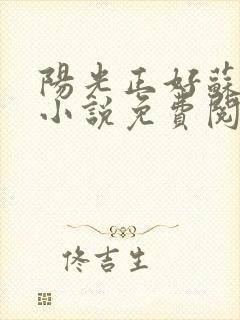 陽光正好蘇
小說免費閱
佟吉生